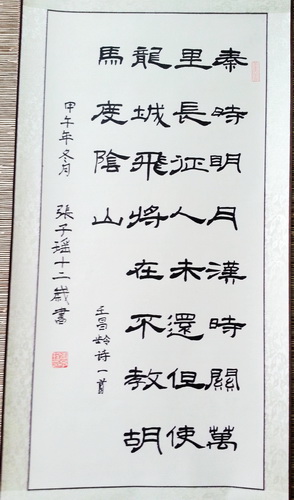 秦時明月漢時關萬
里長征人未還但使
龍城飛將在不教胡
馬度陰山
王昌龄诗一首
甲午年冬月 張子瑶十二歲書